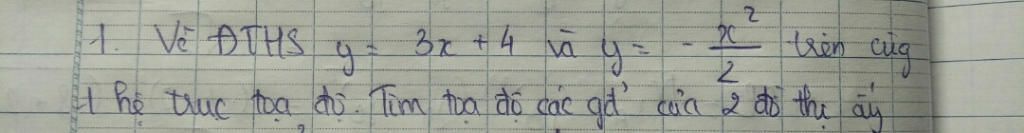 1. Vẽ ĐTHS y = 3x + 4 và y = - x²/2 trên cùg
1 hệ trục toạ độ. Tìm toạ độ các gđ' của 2 đồ thị ấy